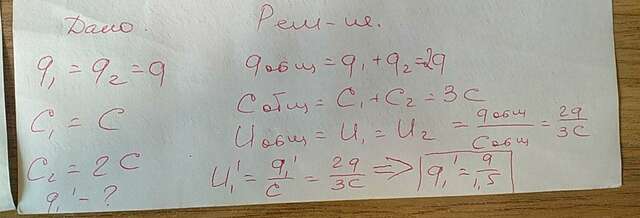 Дано.
q₁ = q₂ = q
C₁ = C
C₂ = 2C
q₁' - ?
Реш-ие.
qобщ = q₁ + q₂ = 2q
Cобщ = C₁ + C₂ = 3C
Uобщ = U₁ = U₂ = qобщ/Cобщ = 2q/3C
U₁' = q₁'/C = 2q/3C => q₁' = q/1,5